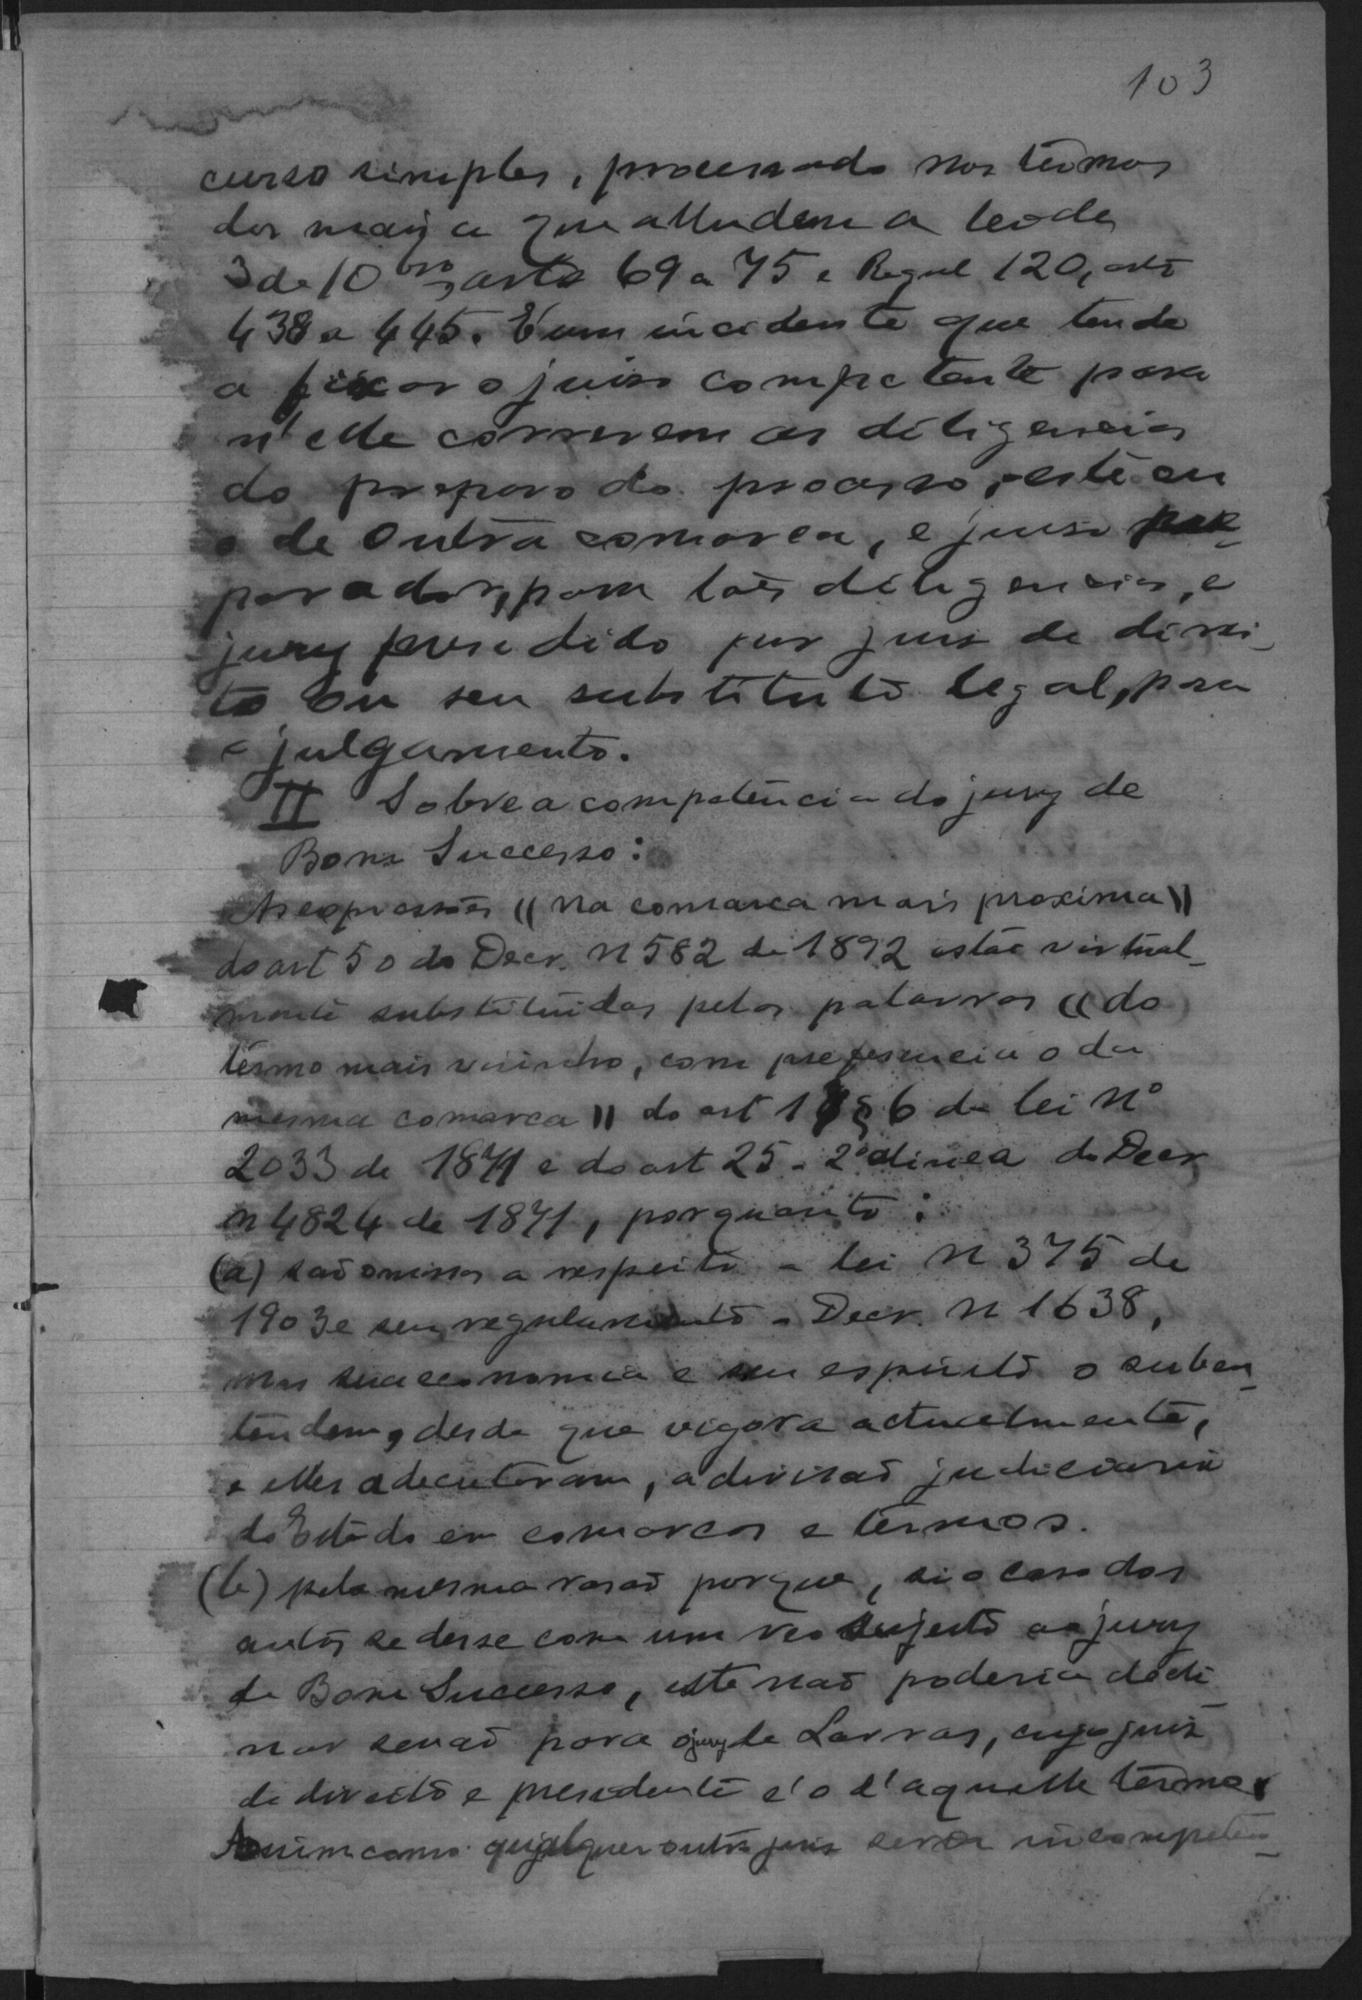 103
curso simples, processado nos termos
dos mais a que alludem a lei de
3 de 10bro, arts 69 a 75 e Regul 120, arts
438 a 445. É um incidente que tende
a fixar o juiso competente para
n'elle correrem as diligencias
do preparo do processo, este ou
o de outra comarca, e juiso pre-
parador, para taes diligencias, e
jury presidido por juiz de direi-
to ou seu substituto legal, para
o julgamento.
II Sobre a competencia do jury de
Bom Successo:
As expressões (( na comarca mais proxima ))
do art 50 do Decr. n 582 de 1892 estão virtual-
mente substituidas pelas palavras (( do
termo mais visinho, com preferencia o da
mesma comarca )) do art 1 § 6 da lei Nº
2033 de 1871 e do art 25 - 2ª alinea do Decr
n 4824 de 1871, porquanto:
(a) são omissos a respeito a lei n 375 de
1903 e seu regulamento - Decr. n 1638,
mas sua economia e seu espirito o suben-
tendem, desde que vigora actualmente,
e elles adoptaram, a divisão judiciaria
do Estado em comarcas e termos.
(b) pela mesma rasão porque, si o caso dos
autos se desse com um reo sujeito ao jury
de Bom Successo, este não poderia decli
nar senão para o jury de Lavras, cujo juiz
de direito e presidente é o d'aquelle termo.
Assim como qualquer outro juiz seria incompeten-